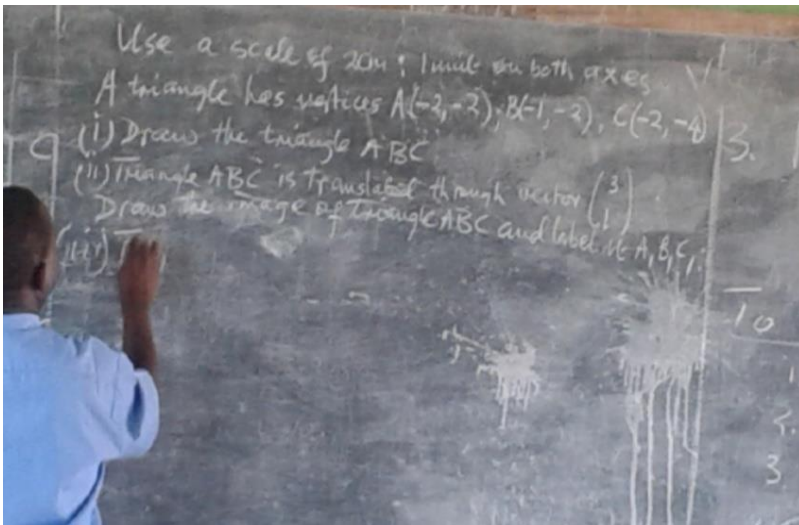 Use a scale of 2cm : 1 unit on both axes
A triangle has vertices A(-2,-2), B(-1,-2), C(-2,-4)
(i) Draw the triangle ABC
(ii) Triangle ABC is translated through vector (3
1)
Draw the image of Triangle ABC and label it A, B, C,.
(iii) T
3.
To
1
2.
3